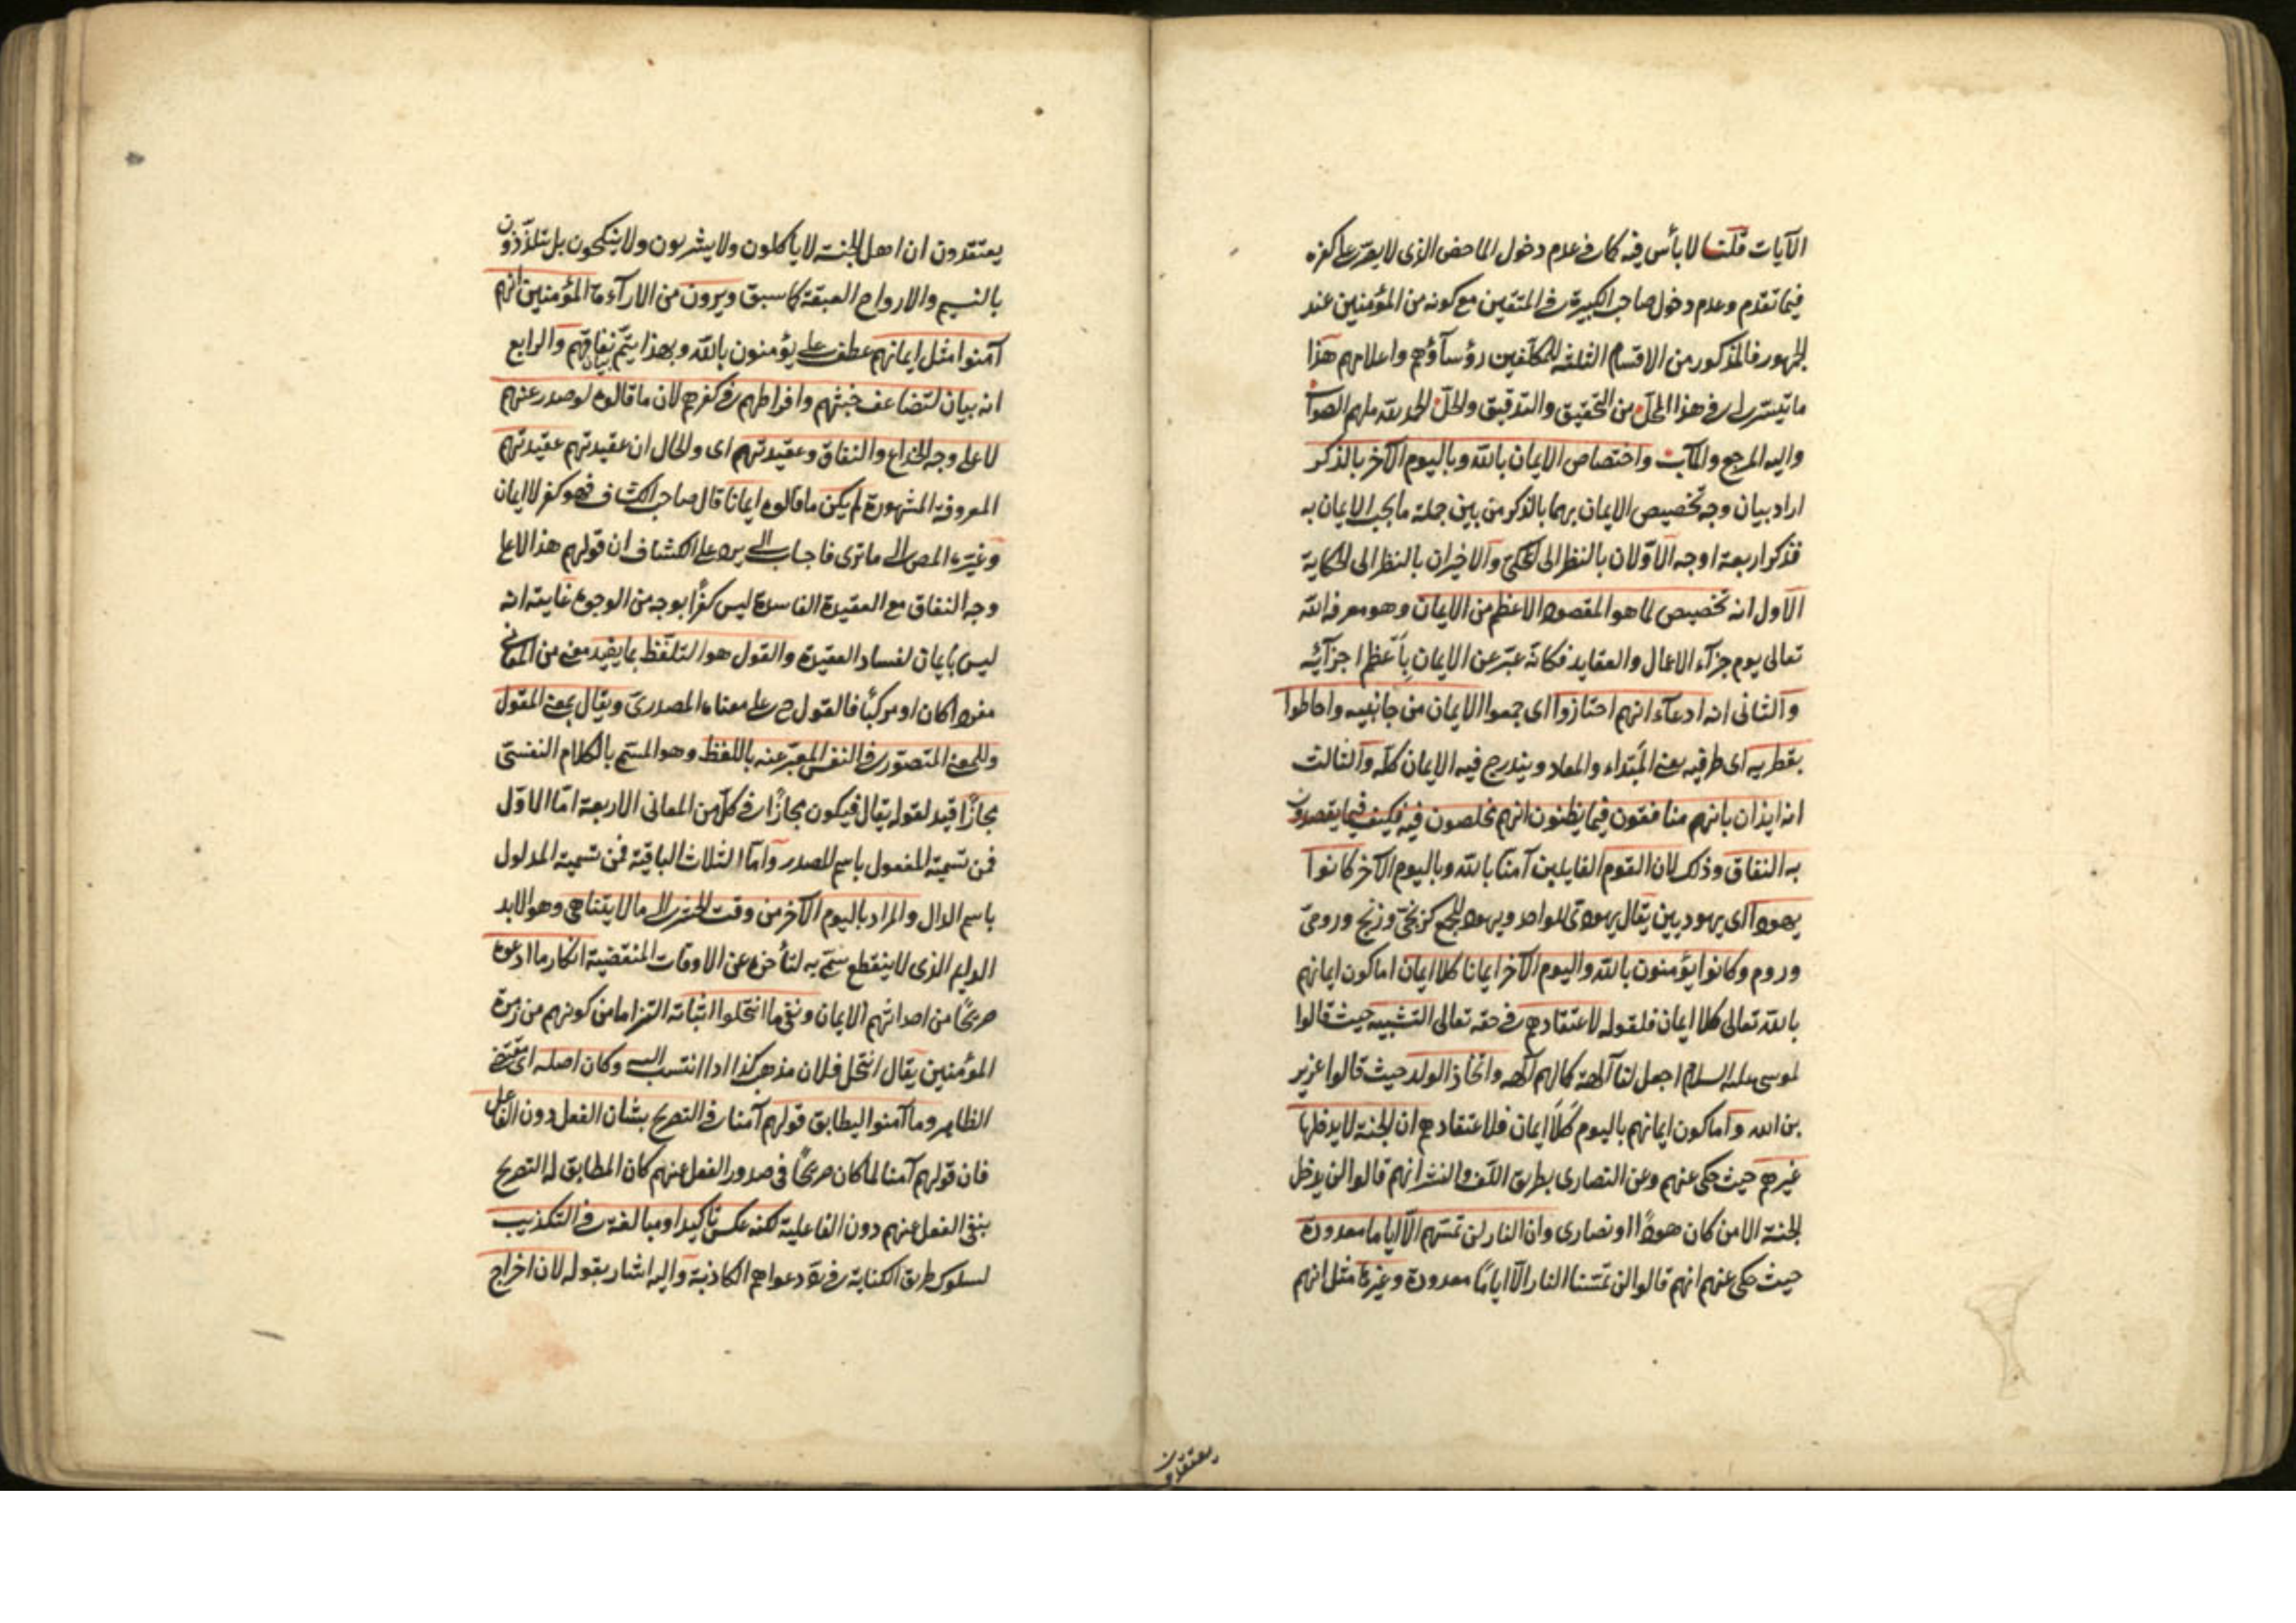 الآيات قلنا لا بأس فيه كما في عدم دخول الماحض الذى لا يصرّ على كفره
فيما تقدم وعدم دخول صاحب الكبيرة في المتقين مع كونه من المؤمنين عند
الجمهور فالمذكور من الاقسام الثلثة للمكلفين رؤسآؤهم واعلامهم هذا
ما تيسّر لى في هذا المحلّ من التحقيق والتدقيق والحلّ الحمد لله ملهم الصواب
واليه المرجع والمآب واختصاص الايمان بالله وباليوم الآخر بالذكر
اراد بيان وجه تخصيص الايمان بهما بالذكر من بين جملة ما يجب الايمان به
فذكر اربعة اوجه الاوّلان بالنظر الى المحكىّ والاخيران بالنظر الى الحكاية
الاول انه تخصيص لما هو المقصود الاعظم من الايمان وهو معرفة الله
تعالى يوم جزآء الاعمال والعقايد فكانه عبّر عن الايمان بأعظم اجزآئه
والثانى انه ادعآء انهم احتازوا اى جمعوا الايمان من جانبيه واحاطوا
بقطريه اى طرفيه يعنى المبتداء والمعاد ويندرج فيه الايمان كلّه والثالث
انه ايذان بانهم منافقون فيما يظنون انهم مخلصون فيه فكيف فيما يقصدون
به النفاق وذلك لان القوم القايلين آمنّا بالله وباليوم الآخر كانوا
يهودا اى يهوديين يقال يهودىّ للواحد ويهود للجمع كزنجىّ وزنج ورومىّ
وروم وكانوا يؤمنون بالله واليوم الآخر ايمانا كلا ايمان اما كون ايمانهم
بالله تعالى كلا ايمان فلقوله لاعتقادهم في حقه تعالى التشبيه حيث قالوا
لموسى عليه السلام اجعل لنا آلهة كما لهم آلهه واتخاذ الولد حيث قالوا عزير
بن الله واما كون ايمانهم باليوم كلا ايمان فلاعتقادهم ان الجنة لا يدخلها
غيرهم حيث حكى عنهم وعن النصارى بطريق اللف والنشر انهم قالوا لن يدخل
الجنة الا من كان هودًا او نصارى وان النار لن تمسّهم الّا اياما معدودة
حيث حكى عنهم انهم قالوا لن تمسّنا النار الّا ايامًا معدودة وغيرها مثل انهم
يعتقدون
يعتقدون ان اهل الجنة لا ياكلون ولا يشربون ولا ينكحون بل يتلذّذون
بالنسيم والارواح العبقة كما سبق ويرون من الارآءة المؤمنين انهم
آمنوا مثل ايمانهم عطف على يؤمنون بالله وبهذا يتمّ بيان نفاقهم والرابع
انه بيان لتضاعف خبثهم وافراطهم في كفرهم لان ما قالوه لو صدر عنهم
لا على وجه الخداع والنفاق وعقيدتهم اى والحال ان عقيدتهم عقيدتهم
المعروفة المشهورة لم يكن ما قالوه ايمانا قال صاحب الكشاف فهو كفر لا ايمان
وغيّره المص الى ما ترى فاجاب الى يرد على الكشاف ان قولهم هذا لا على
وجه النفاق مع العقيدة الفاسدة ليس كفرًا بوجه من الوجوه غايته انه
ليس بايمان لفساد العقيدة والقول هو التلفّظ بما يفيد معنى من المعانى
مفردا كان او مركبًا فالقول ح على معناه المصدرىّ ويقال بمعنى المقول
وللمعنى المتصوّر في النفس المعبّر عنه باللفظ وهو المسمّى بالكلام النفسىّ
مجازًا قيد لقوله يقال فيكون مجازًا في كلّ من المعانى الاربعة امّا الاوّل
فمن تسمية المفعول باسم المصدر وامّا الثلاث الباقية فمن تسمية المدلول
باسم الدال والمراد باليوم الآخر من وقت الحشر الى ما لا يتناهى وهو الابد
الدايم الذى لا ينقطع سمّى به لتأخره عن الاوقات المنقضية انكار ما ادعوه
صريحًا من احداثهم الايمان ونفى ما انتحلوا اثباته التزاما من كونهم من زمرة
المؤمنين يقال انتحل فلان مذهب كذا اذا انتسب اليه وكان اصله اى مقتضى
الظاهر وما آمنوا ليطابق قولهم آمنا في التصريح بشان الفعل دون الفاعل
فان قولهم آمنا لما كان صريحًا فى صدور الفعل عنهم كان المطابق له التصريح
بنفى الفعل عنهم دون الفاعلية لكنه عكس تأكيدا ومبالغة في التكذيب
لسلوك طريق الكناية في ردّ دعواهم الكاذبة واليه اشار بقوله لان اخراج